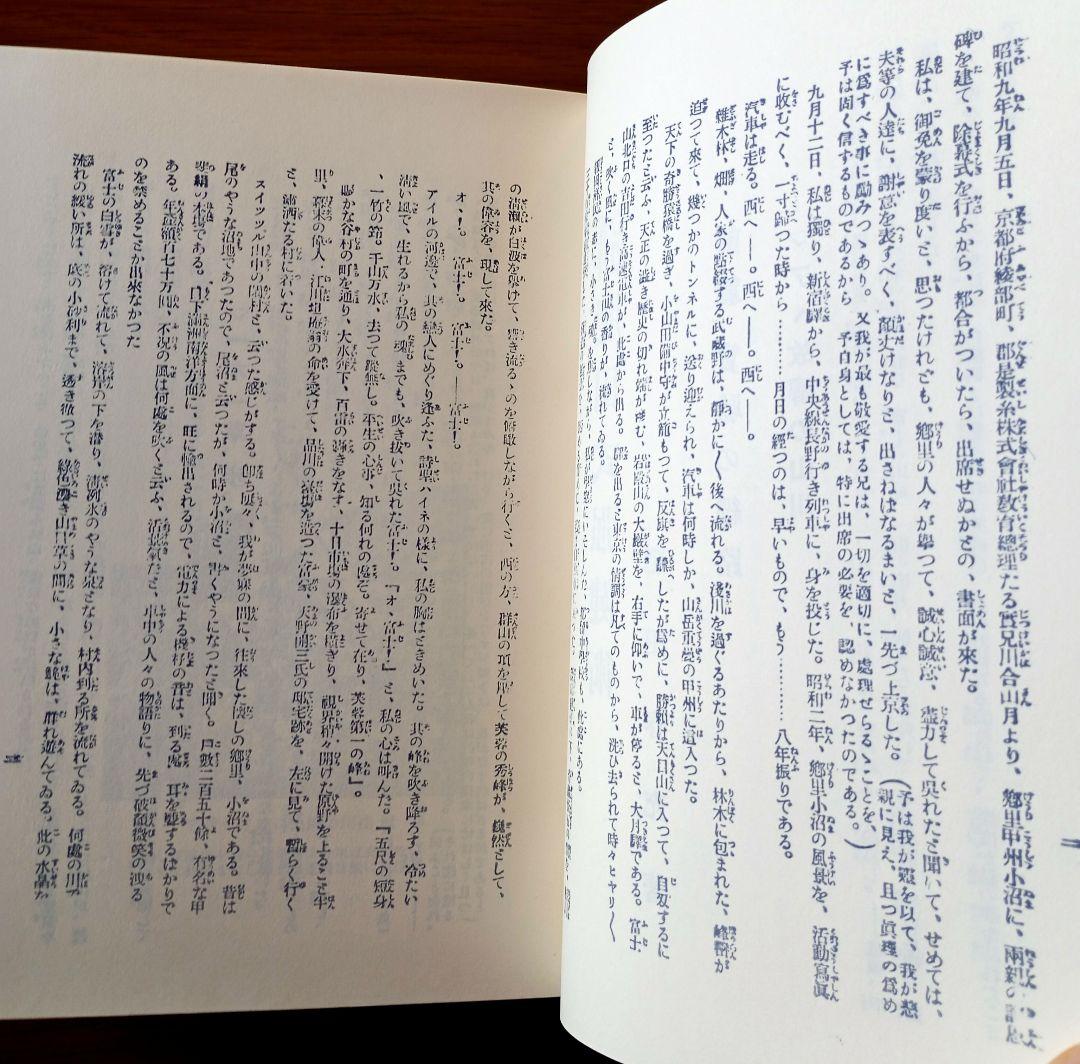 昭和九年九月五日、京都府綾部町、郡是製糸株式會社教育總理たる實兄川合山月より、郷里甲州小沼に、兩親の記念
碑を建て、除幕式を行ふから、都合がついたら、出席せぬかとの、書面が來た。
私は、御免を蒙り度いと、思つたけれども、郷里の人々が擧つて、誠心誠意、盡力して呉れたと聞いて、せめては、
夫等の人達に、謝意を表すべく、顔丈けなりと、出さねばなるまいと、一先づ上京した。(予は我が靈を以て、我が慈
親に見え、且つ眞理の爲め
に爲すべき事に勵みつゝあり。又我が最も敬愛する兄は、一切を適切に、處理せらるゝことを、
予は固く信ずるものであるから 予自身としては、特に出席の必要を 認めなかつたのである。)
九月十二日、私は獨り、新宿驛から、中央線長野行き列車に、身を投じた。昭和二年、郷里小沼の風景を、活動寫眞
に收むべく、一寸歸つた時から………月日の經つのは、早いもので、もう………八年振りである。
汽車は走る。西へ――。西へ――。西へ――。
雜木林、畑、人家の點綴する武藏野は、靜かに〳〵後へ流れる。淺川を過ぐるあたりから、林木に包まれた、峰巒が
迫つて來て、幾つかのトンネルに、送り迎えられ、汽車は何時しか、山岳重疊の甲州に這入つた。
天下の奇勝猿橋を過ぎ、小山田備中守が立籠もつて、反旗を、飜へしたが爲めに、勝頼は天目山に入つて、自刄するに
至つたと云ふ、天正の遠き歴史の切れ端が潜む、岩殿山の大巖壁を、右手に仰いで、車が停ると、大月驛である。富士
山北口の吉田行き高速電車が、此處から出る。驛を出ると東京の情調は凡てのものから、洗ひ去られて時々ヒヤリ〳〵
と、吹く風にも、もう富士山の香りが、流れてゐる。
の清瀬が白波を擧げて、
其の偉容を、現して來た。
オ、！。富士！。富士！。――富士！。
アイルの河邊で、其の戀人にめぐり逢ふた、詩聖ハイネの樣に、私の胸はときめいた。其の峰を吹き降ろす、冷たい
清い風で、生れるから私の、魂までも、吹き抜いて呉れた富士！。『オ、富士！』と、私の心は叫んだ。『五尺の短身
、一竹の筇。千山万水、去つて蹤無し。平生の心事、知る何れの處ぞ。寄せて在り、芙蓉第一の峰』。
賑かな谷村の町を通り、大水奔下、百雷の轟きをなす、十日市場の瀑布を過ぎり、視界稍々開けた原野を上ること半
里、幕末の偉人、江川坦庵の命を受けて、品川の臺場を造つた富豪 天野開三氏の邸宅跡を、左に見て、暫らく行く
と、瀟洒たる村に着いた。
スイツツル山中の閑村と、云つた感じがする。即ち屡々、我が夢寐の間に、往來した懷しの郷里、小沼である。昔は
尾のやうな沼地であつたので、尾沼と云つたが、何時か小沼と、書くやうになつたと聞く。戸數二百五十餘、有名な甲
斐絹の本場である。目下滿洲南洋方面に、旺に輸出されるので、電力による機杼の音は、到る處 耳を聾するばかりで
ある。年産額百七十万圓、不況の風は何處を吹くと云ふ、活氣だと、車中の人々の物語りに、先づ破顔微笑の洩る
のを禁めることが出來なかつた
富士の白雪が、溶けて流れて、溶岸の下を潜り、清冽氷のやうな泉となり、村内到る所を流れてゐる。何處の川で
流れの緩い所は、底の小砂利まで、透き徹つて、綠色濃き水草の間に、小さな鮠は、群れ遊んでゐる。此の水晶た